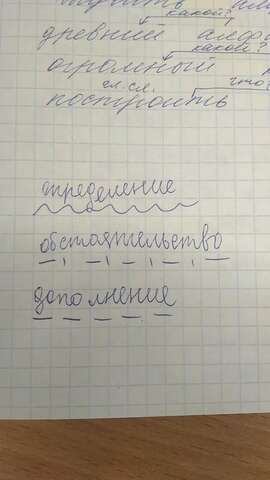 какой?
древний алф
какой?
огромный
гл.сл. что
построить
определение
обстоятельство
дополнение